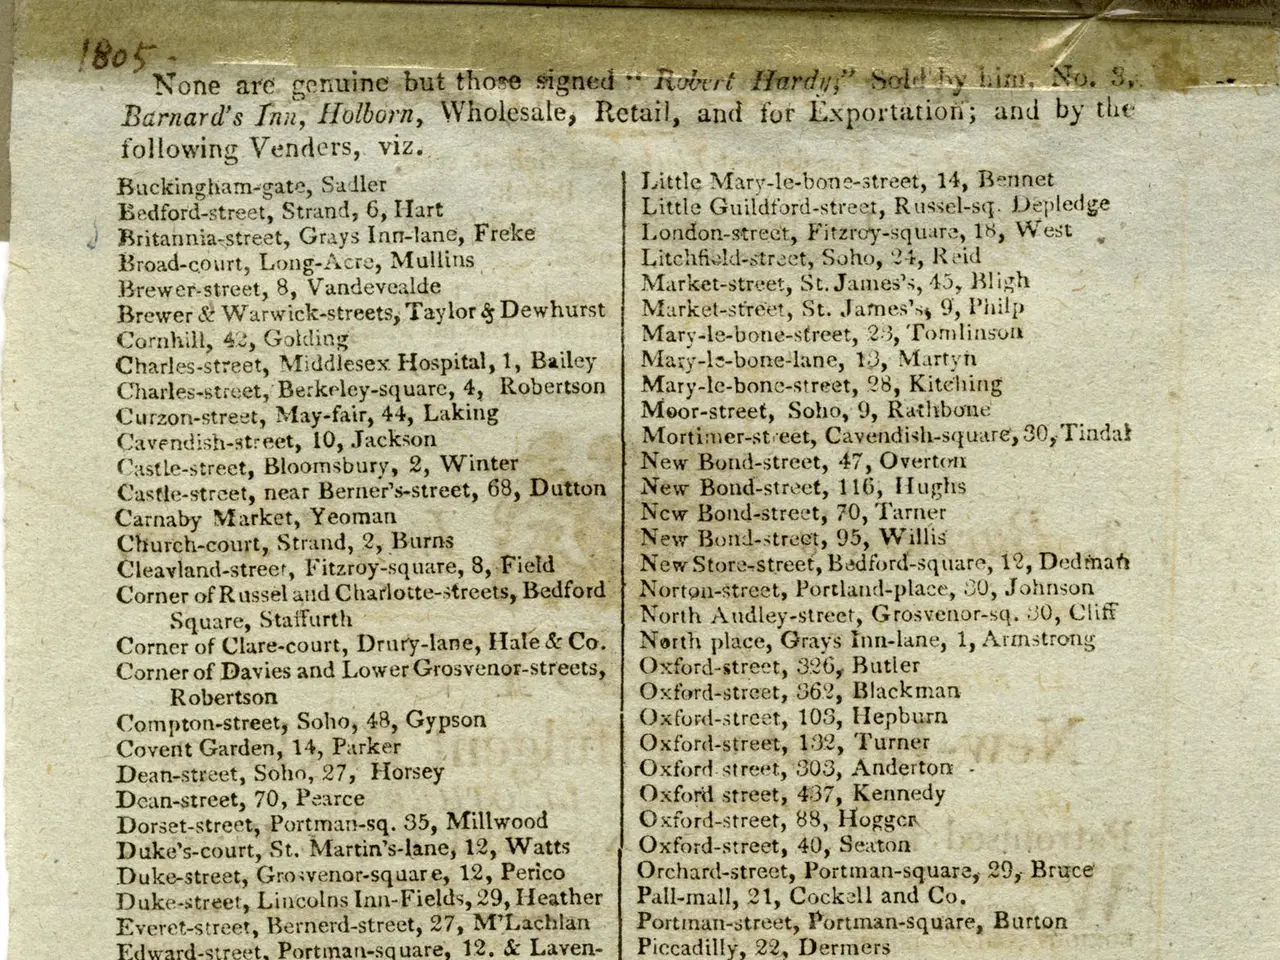 1805.
None are genuine but those signed "Robert Hardy," Sold by him, No. 3,
Barnard's Inn, Holborn, Wholesale, Retail, and for Exportation; and by the
following Venders, viz.
Buckingham-gate, Sadler
Bedford-street, Strand, 6, Hart
Britannia-street, Grays Inn-lane, Freke
Broad-court, Long-Acre, Mullins
Brewer-street, 8, Vandevealde
Brewer & Warwick-streets, Taylor & Dewhurst
Cornhill, 42, Golding
Charles-street, Middlesex Hospital, 1, Bailey
Charles-street, Berkeley-square, 4, Robertson
Curzon-street, May-fair, 44, Laking
Cavendish-street, 10, Jackson
Castle-street, Bloomsbury, 2, Winter
Castle-street, near Berner's-street, 68, Dutton
Carnaby Market, Yeoman
Church-court, Strand, 2, Burns
Cleavland-street, Fitzroy-square, 8, Field
Corner of Russel and Charlotte-streets, Bedford
Square, Staffurth
Corner of Clare-court, Drury-lane, Hale & Co.
Corner of Davies and Lower Grosvenor-streets,
Robertson
Compton-street, Soho, 48, Gypson
Covent Garden, 14, Parker
Dean-street, Soho, 27, Horsey
Dean-street, 70, Pearce
Dorset-street, Portman-sq. 35, Millwood
Duke's-court, St. Martin's-lane, 12, Watts
Duke-street, Grosvenor-square, 12, Perico
Duke-street, Lincolns Inn-Fields, 29, Heather
Everet-street, Bernerd-street, 27, M'Lachlan
Edward-street, Portman-square, 12. & Laven-
Little Mary-le-bone-street, 14, Bennet
Little Guildford-street, Russel-sq. Depledge
London-street, Fitzroy-square, 18, West
Litchfield-street, Soho, 24, Reid
Market-street, St. James's, 45, Bligh
Market-street, St. James's, 9, Philp
Mary-le-bone-street, 23, Tomlinson
Mary-le-bone-lane, 13, Martyn
Mary-le-bone-street, 28, Kitching
Moor-street, Soho, 9, Rathbone
Mortimer-street, Cavendish-square, 30, Tindal
New Bond-street, 47, Overton
New Bond-street, 116, Hughs
New Bond-street, 70, Tarner
New Bond-street, 95, Willis
New Store-street, Bedford-square, 12, Dedman
Norton-street, Portland-place, 30, Johnson
North Audley-street, Grosvenor-sq. 30, Cliff
North place, Grays Inn-lane, 1, Armstrong
Oxford-street, 326, Butler
Oxford-street, 362, Blackman
Oxford-street, 103, Hepburn
Oxford-street, 132, Turner
Oxford street, 303, Anderton
Oxford street, 437, Kennedy
Oxford-street, 88, Hogger
Oxford-street, 40, Seaton
Orchard-street, Portman-square, 29, Bruce
Pall-mall, 21, Cockell and Co.
Portman-street, Portman-square, Burton
Piccadilly, 22, Dermers